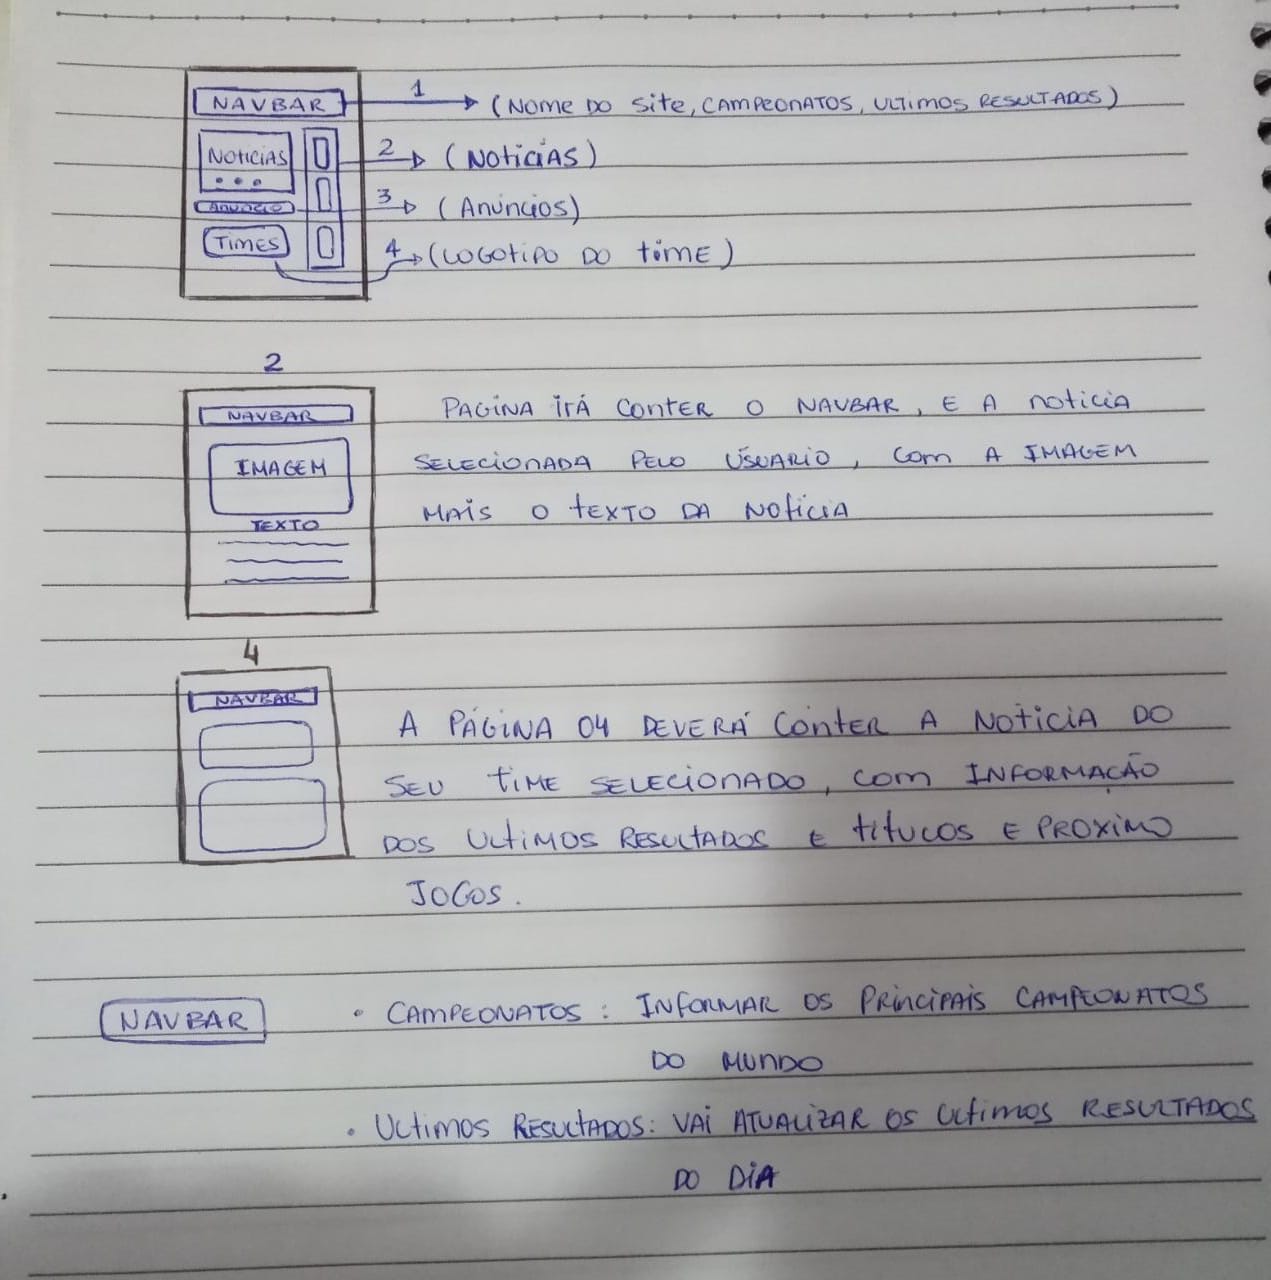 NAVBAR
1
(NOME DO SITE, CAMPEONATOS, ULTIMOS RESULTADOS)
NOTICIAS
2
(NOTICIAS)
ANUNCIO
3
(ANÚNCIOS)
TIMES
4
(LOGOTIPO DO TIME)
2
NAVBAR
IMAGEM
TEXTO
PAGINA IRÁ CONTER O NAVBAR, E A NOTICIA
SELECIONADA PELO USUARIO, COM A IMAGEM
MAIS O TEXTO DA NOTICIA
4
NAVBAR
A PÁGINA 04 DEVERÁ CONTER A NOTICIA DO
SEU TIME SELECIONADO, COM INFORMAÇÃO
DOS ULTIMOS RESULTADOS E TITULOS E PROXIMO
JOGOS.
NAVBAR
• CAMPEONATOS: INFORMAR OS PRINCIPAIS CAMPEONATOS
DO MUNDO
• ULTIMOS RESULTADOS: VAI ATUALIZAR OS ULTIMOS RESULTADOS
DO DIA